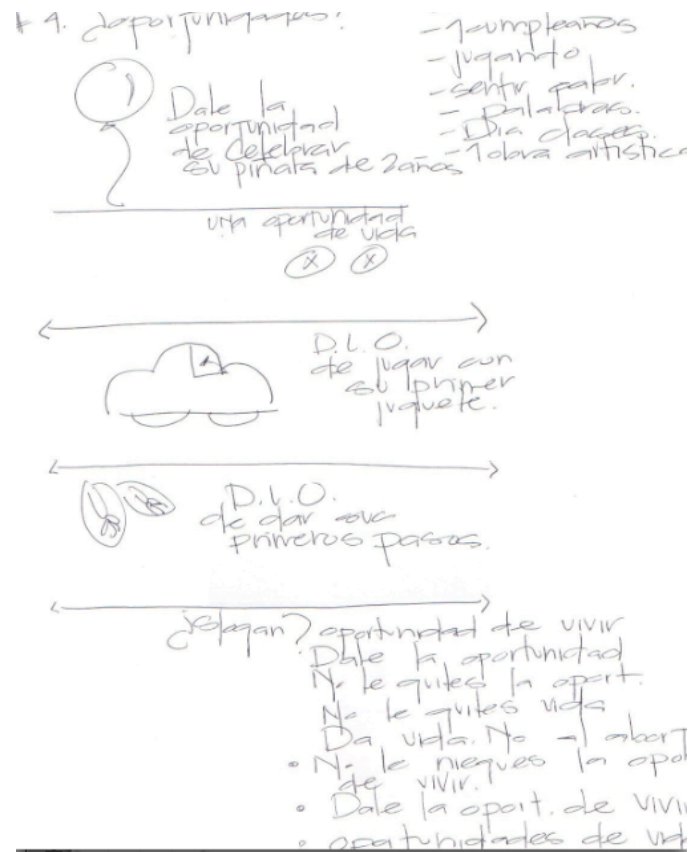 # 4. ¿oportunidades?
- 1 cumpleaños
- jugando
- sentir calor.
- palabras.
- Dia clases.
- 1 obra artistica
Dale la
oportunidad
de celebrar
su piñata de 2 años
una oportunidad
de vida
X X
D.L.O.
de jugar con
su primer
juguete.
D.L.O.
de dar sus
primeros pasos.
¿slogan? oportunidad de vivir
Dale la oportunidad
No le quites la oport.
No le quites vida
Da vida. No al abort
• No le nieques la opo
de vivir.
• Dale la oport. de vivir
• oportunidades de vida